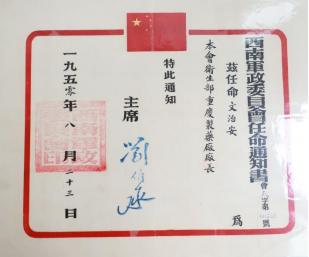 西南軍政委員會任命通知書
會 字第 號
茲任命 文治安 為
本會衛生部重慶製藥廠廠長
特此通知
主席 劉伯承
一九五零年八月二十三日